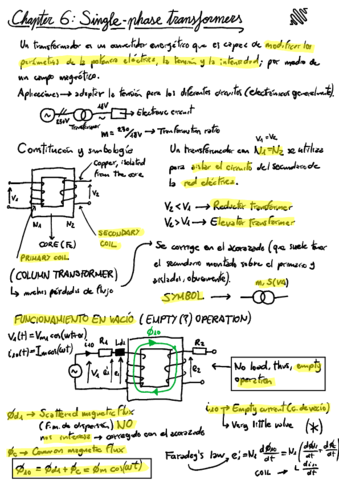 Chapter 6: Single-phase transformers
Un transformador es un convertidor energético que es capaz de modificar los
parámetros de la potencia eléctrica, la tensión y la intensidad; por medio de
un campo magnético.
Aplicaciones → adaptar la tensión para los diferentes circuitos (electrónicos generalmente).
230V Transformer 48V → Electronic circuit
m = 230/48V → Transformation ratio
Constitución y simbología
copper, isolated
from the core
V1 V2
N1 N2
CORE (Fe)
PRIMARY COIL
SECONDARY
COIL
(COLUMN TRANSFORMER)
↳ muchas pérdidas de flujo
V1 = V2
Un transformador con N1=N2 se utiliza
para aislar el circuito del secundario de
la red eléctrica.
V2 < V1 → Reductor Transformer
V2 > V1 → Elevator Transformer
Se corrige en el acorazado (que suele tener
el secundario montado sobre el primario y
aislados, obviamente).
SYMBOL → m, S(VA)
FUNCIONAMIENTO EN VACÍO (EMPTY (?) OPERATION)
V1(t) = Vm1 cos(wt+α)
i10(t) = Im cos(wt)
i10 R1 Ld1
ϕ10
R2
V1 e1 e2
No load, thus, empty
operation
ϕd1 → Scattered magnetic flux
(F.m. de dispersión) NO
nos interesa → corregido con el acorazado
ϕc → Common magnetic flux
ϕ10 = ϕd1 + ϕc = ϕm cos(wt)
i10 → Empty current (c. de vacío)
↳ Very little value (*)
Faraday's law, e1 = N1 dϕ10/dt = N1 (dϕd1/dt + dϕc/dt)
COIL → L di10/dt